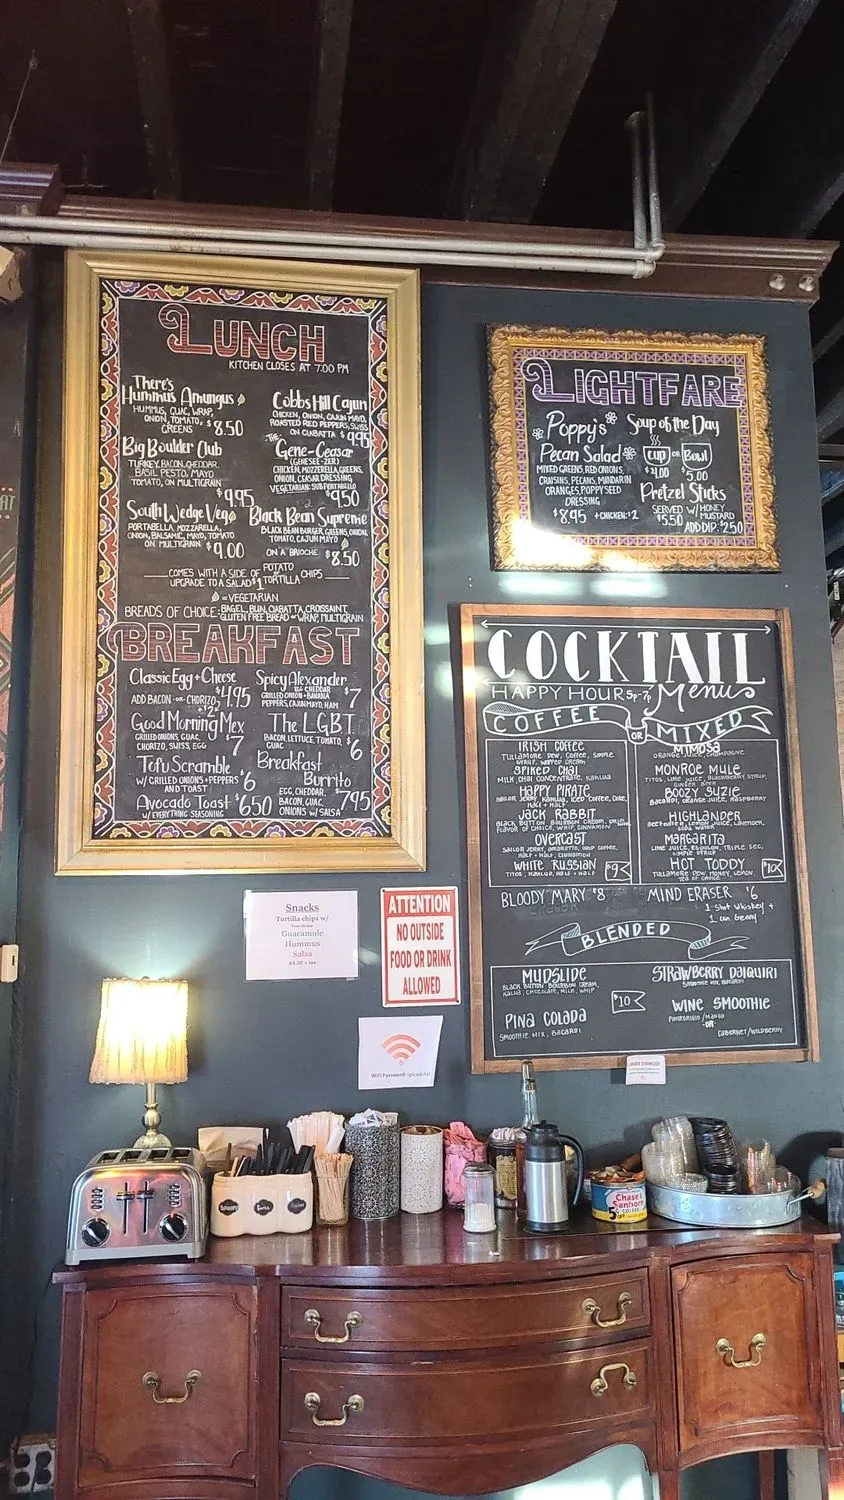 LUNCH
KITCHEN CLOSES AT 7:00 PM
There's
Hummus Amungus
HUMMUS, GUAC, WRAP,
ONION, TOMATO,
GREENS $8.50
Big Boulder Club
TURKEY, BACON, CHEDDAR,
BASIL PESTO, MAYO
TOMATO, ON MULTIGRAIN
$9.95
South Wedge Veg
PORTABELLA, MOZZARELLA,
ONION, BALSAMIC, MAYO, TOMATO
ON MULTIGRAIN $9.00
Cobbs Hill Cajun
CHICKEN, ONION, CAJUN MAYO,
ROASTED RED PEPPERS, SWISS
ON CIABATTA $9.95
THE Gene-Ceasar
(GENESEE-ZER)
CHICKEN, MOZZERELLA, GREENS,
ONION, CEASAR DRESSING
VEGETARIAN: SUB PORTABELLO
$9.50
Black Bean Supreme
BLACK BEAN BURGER, GREENS, ONION,
TOMATO, CAJUN MAYO
ON A BRIOCHE $8.50
COMES WITH A SIDE OF POTATO OR TORTILLA CHIPS
UPGRADE TO A SALAD $1
=VEGETARIAN
BREADS OF CHOICE: BAGEL, BUN, CIABATTA, CROISSANT,
GLUTEN FREE BREAD OR WRAP, MULTIGRAIN
BREAKFAST
Classic Egg + Cheese
$4.95
ADD BACON -OR- CHORIZO
+$2
Good Morning Mex
GRILLED ONIONS, GUAC,
CHORIZO, SWISS, EGG $7
Tofu Scramble
W/ GRILLED ONIONS + PEPPERS
AND TOAST $6
Avocado Toast $6.50
W/ EVERYTHING SEASONING
Spicy Alexander
EGG, CHEDDAR
GRILLED ONION + BANANA
PEPPERS, CAJUN MAYO, HAM $7
The L.G.B.T.
BACON, LETTUCE, TOMATO,
GUAC $6
Breakfast
Burrito
EGG, CHEDDAR,
BACON, GUAC,
ONIONS W/ SALSA $7.95
LIGHTFARE
Poppy's
Pecan Salad
MIXED GREENS, RED ONIONS,
CRAISINS, PECANS, MANDARIN
ORANGES, POPPYSEED
DRESSING
$8.95 +CHICKEN: $2
Soup of the Day
CUP OR BOWL
$4.00 $5.00
Pretzel Sticks
SERVED W/ HONEY
$5.50 MUSTARD
ADD DIP: $2.50
COCKTAIL
HAPPY HOUR 5p-7p Menu
COFFEE OR MIXED
IRISH COFFEE
TULLAMORE DEW, COFFEE, SIMPLE
SYRUP, WHIPPED CREAM
SPIKED CHAI
MILK, CHAI CONCENTRATE, KAHLUA
HAPPY PIRATE
SAILOR JERRY, KAHLUA, ICED COFFEE, COKE,
HALF + HALF
JACK RABBIT
BLACK BUTTON BOURBON CREAM, DRIP,
FLAVOR OF CHOICE, WHIP, CINNAMON
OVERCAST
SAILOR JERRY, AMARETTO, DRIP COFFEE,
HALF + HALF, CINNAMON
WHITE RUSSIAN
TITOS, KAHLUA, HALF + HALF
$9
MIMOSA
ORANGE JUICE, CHAMPAGNE
MONROE MULE
TITOS, LIME JUICE, BLACKBERRY SYRUP,
GINGER BEER
BOOZY SUZIE
BACARDI, ORANGE JUICE, RASPBERRY
HIGHLANDER
BEEFEATER, LEMON JUICE, LAVENDER,
SODA WATER
MARGARITA
LIME JUICE, ESPOLON, TRIPLE SEC,
SIMPLE SYRUP
HOT TODDY
TULLAMORE DEW, HONEY, LEMON,
TEA OF CHOICE
$10
BLOODY MARY $8
MIND ERASER $6
1 Shot Whiskey +
1 can Genny
BLENDED
MUDSLIDE
BLACK BUTTON BOURBON CREAM,
KALUA, CHOCOLATE, MILK, WHIP
PINA COLADA
SMOOTHIE MIX, BACARDI
$10
STRAWBERRY DAIQUIRI
SMOOTHIE MIX, BACARDI
WINE SMOOTHIE
PINOT GRIGIO/MANGO
-OR-
CABERNET/WILDBERRY
Snacks
Tortilla chips w/
Your choice:
Guacamole
Hummus
Salsa
$4.50 + tax
ATTENTION
NO OUTSIDE
FOOD OR DRINK
ALLOWED
Wifi Password: spicedchai
Spoons
Forks
Knives
Chase &
Sanborn
COFFEE